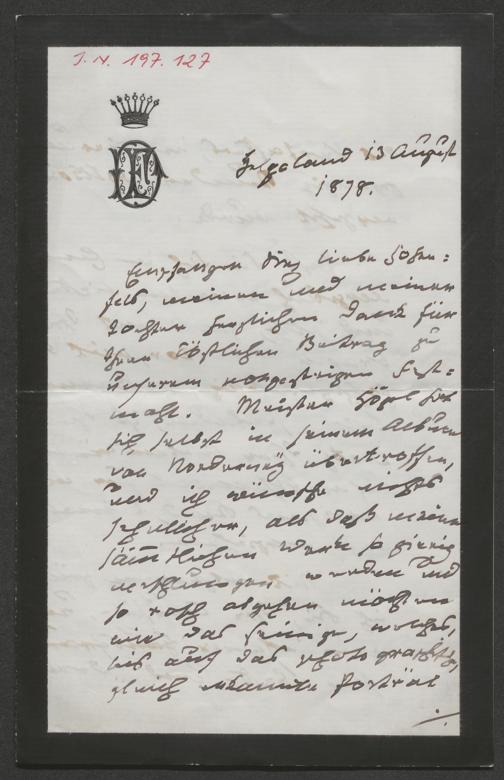 I.N. 197.127
Helgoland 13 August
1878.
Empfangen Sie, liebe Hohen-
fels, meinen und meiner
Tochter herzlichen Dank für
Ihren köstlichen Beitrag zu
unserem vorgestrigen Fest-
mahl. Meister Högel hat
sich selbst in seinem Album
von Norderney übertroffen,
und ich wünsche nichts
sehnlicher, als daß meine
sämtlichen Werke so gierig
verschlungen werden und
so rasch abgehen möchten
wie das seinige, welches,
bis auf das photographis
gleich Porträt